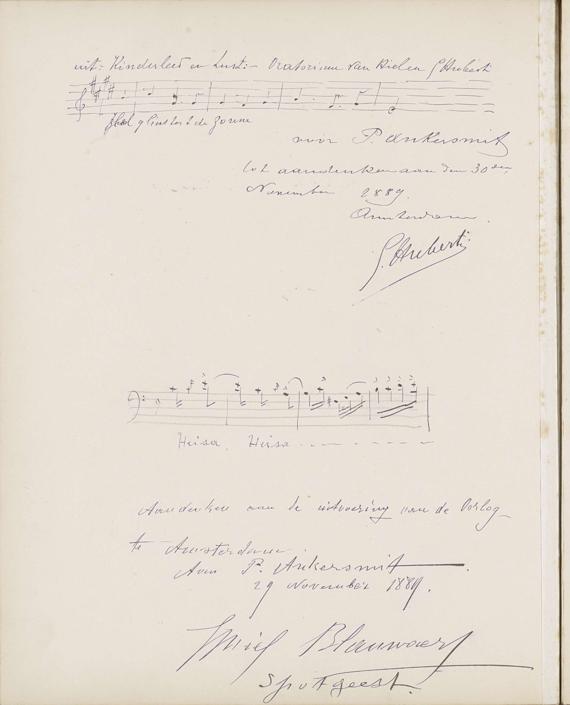 uit: Kinderlust en Lust:- Oratorium van Hielen G Huberti
voor P. Ankersmit
tot aandenken aan den 30en
November 1889.
Amsterdam.
G. Huberti
Heisa, Heisa
Aandenken aan de uitvoering van de Oorlog
te Amsterdam
Aan P. Ankersmit
29 November 1889.
Emiel Blauwaert
Spotgeest.